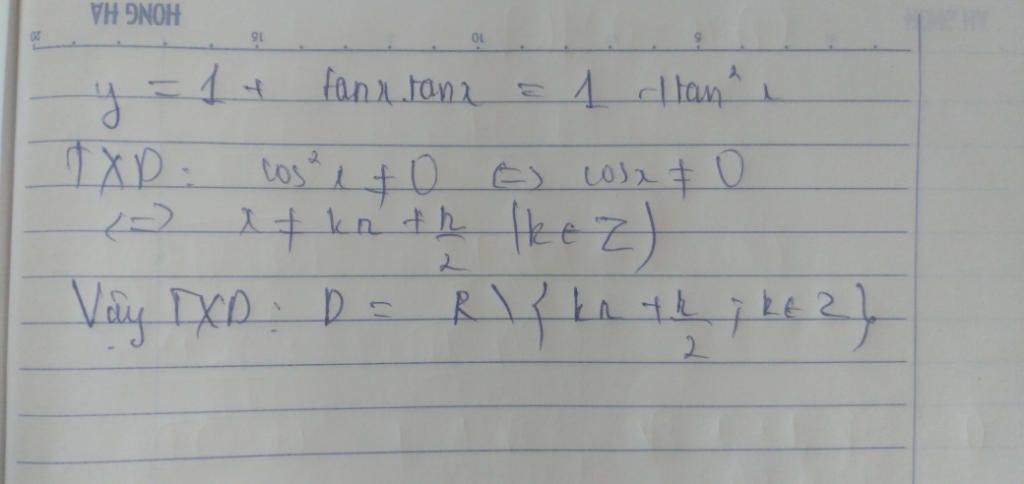 HONG HA
20 15 10 5
y = 1 + tanx.tanx = 1 + tan² x
TXD: cos² x ≠ 0 <=> cosx ≠ 0
<=> x ≠ kπ + π/2 (k ∈ Z)
Vậy TXD: D = R \ { kπ + π/2 ; k ∈ Z }